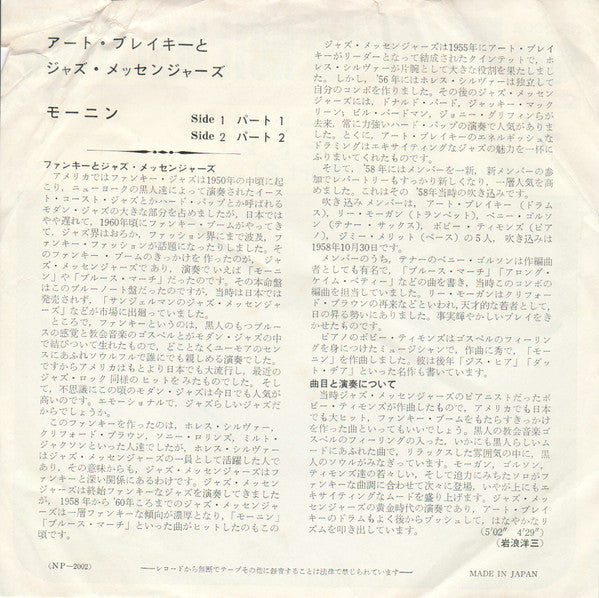 アート・ブレイキーと
ジャズ・メッセンジャーズ
モーニン
Side 1 パート 1
Side 2 パート 2
ファンキーとジャズ・メッセンジャーズ
アメリカではファンキー・ジャズは1950年の中頃に起
こり、ニューヨークの黒人達によって演奏されたイース
ト・コースト・ジャズとかハード・バップとか呼ばれる
モダン・ジャズの大きな部分を占めましたが、日本では
やや遅れて、1960年頃にファンキー・ブームがやってき
て、ジャズ界はおろか、ファッション界にまで波及、フ
ァンキー・ファッションが話題になったりしました。そ
のファンキー・ブームのきっかけを作ったのが、ジャ
ズ・メッセンジャーズであり、演奏でいえば「モーニ
ン」や「ブルース・マーチ」だったのです。その本命盤
はこのブルーノート盤だったのですが、当時は日本では
発売されず、「サンジェルマンのジャズ・メッセンジャー
ズ」などが市場に出廻っていました。
ところで、ファンキーというのは、黒人のもつブルー
スの感覚と教会音楽のゴスペルとがモダン・ジャズの中
で結びついて生れたもので、どことなくユーモアのセン
スにあふれソウルフルで誰にでも親しめる演奏でした。
ですからアメリカはもとより日本でも大流行し、最近の
ジャズ・ロック同様のヒットをみたものでした。そし
て、不思議にこの頃のモダン・ジャズは今日でも人気が
高いのです。エモーショナルで、ジャズらしいジャズだ
からでしょうか。
このファンキーを作ったのは、ホレス・シルヴァー、
クリフォード・ブラウン、ソニー・ロリンズ、ミルト・
ジャクソンといった人達でしたが、ホレス・シルヴァー
はジャズ・メッセンジャーズの一員として活躍した人で
あり、その意味からも、ジャズ・メッセンジャーズはファ
ンキーと深い関係にあるわけです。ジャズ・メッセンジ
ャーズは終始ファンキーなジャズを演奏してきました
が、1958年から'60年ころまでのジャズ・メッセンジャー
ズは一層ファンキーな傾向が濃厚となり、「モーニン」
「ブルース・マーチ」といった曲がヒットしたのもこの
頃です。
ジャズ・メッセンジャーズは1955年にアート・ブレイ
キーがリーダーとなって結成されたクインテットで、ホ
レス・シルヴァーが片腕として大きな役割を果たしまし
た。しかし、'56年にはホレス・シルヴァーは独立して
自分のコンボを作りました。その後のジャズ・メッセン
ジャーズには、ドナルド・バード、ジャッキー・マック
リーン、ビル・ハードマン、ジョニー・グリフィンらが
去来、常に力強いハード・バップの演奏で人気がありまし
た。とくに、アート・ブレイキーのエネルギッシュな
ドラミングはエキサイティングなジャズの魅力を一杯に
ふりまいてくれたものです。
そして、'58年にはメンバーを一新、新メンバーの参
加でレパートリーもすっかり新しくなり、一層人気を高
めました。これはその'58年当時の吹き込みです。
吹き込みメンバーは、アート・ブレイキー（ドラム
ス）、リー・モーガン（トランペット）、ベニー・ゴル
ソン（テナー・サックス）、ボビー・ティモンズ（ピア
ノ）、ジミー・メリット（ベース）の5人、吹き込みは
1958年10月30日です。
メンバーのうち、テナーのベニー・ゴルソンは作編曲
者としても有名で、「ブルース・マーチ」「アロング・
ケイム・ベティー」などの曲を書き、当時このコンボの
編曲を担当していました。リー・モーガンはクリフォー
ド・ブラウンの再来などといわれ、天才的な若者として、
日の昇る勢いにありました。事実輝やかしいプレイをき
かせたものです。
ピアノのボビー・ティモンズはゴスペルのフィーリン
グを身につけたミュージシャンで、作曲に秀で、「モー
ニン」を作曲しました。彼は後年「ジス・ヒア」「ダッ
ト・デア」といった名作も書いています。
曲目と演奏について
当時ジャズ・メッセンジャーズのピアニストだったボ
ビー・ティモンズが作曲したもので、アメリカでも日本
でも大ヒット、ファンキー・ブームをもたらすきっかけ
を作った曲といってもいいでしょう。黒人の教会音楽ゴ
スペルのフィーリングの入った、いかにも黒人らしいム
ードにあふれた曲で、リラックスした雰囲気の中に、黒
人のソウルがみなぎっています。モーガン、ゴルソン、
ティモンズ達の若々しい、そして迫力にみちたソロがフ
ァンキーな曲調に合わせて次々に登場、いやが上にもエ
キサイティングなムードを盛り上げます。ジャズ・メッ
センジャーズの黄金時代の演奏であり、アート・ブレイキ
ーのドラムもよく後からプッシュして、はなやかなリ
ズムを叩き出しています。
(5'02" 4'29")
（岩浪洋三）
(NP—2002)
——レコードから無断でテープその他に録音することは法律で禁じられています——
MADE IN JAPAN